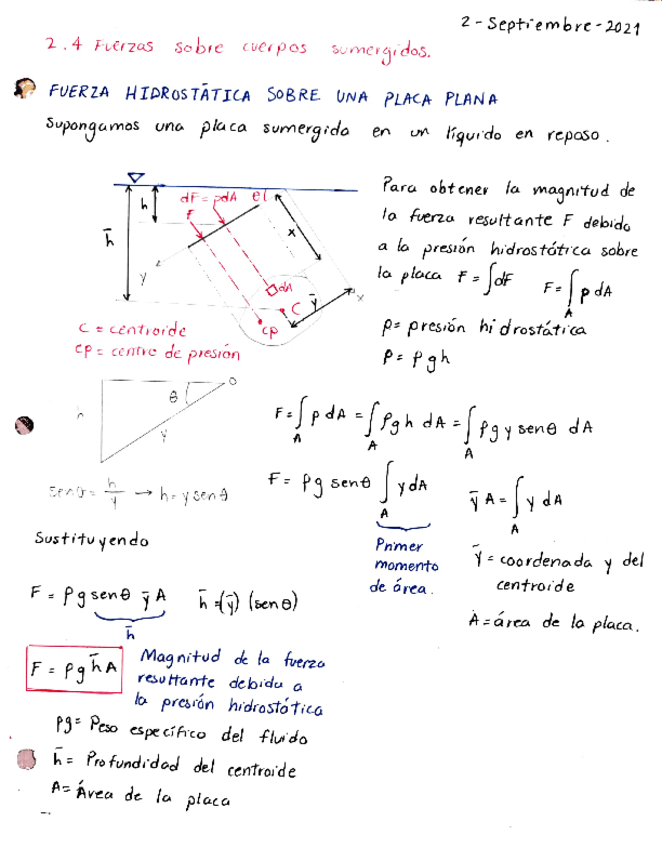 2-Septiembre-2021
2.4 Fuerzas sobre cuerpos sumergidos.
FUERZA HIDROSTÁTICA SOBRE UNA PLACA PLANA
Supongamos una placa sumergida en un líquido en reposo.
h
dF = pdA
F
h̄
x
y
dA
C
ȳ
x
cp
C = centroide
cp = centro de presión
Para obtener la magnitud de
la fuerza resultante F debido
a la presión hidrostática sobre
la placa F = ∫dF F = ∫_A p dA
p = presión hidrostática
P = ρgh
θ
O
h
y
senθ = h/y → h = y senθ
F = ∫_A p dA = ∫_A ρgh dA = ∫_A ρg y senθ dA
F = ρg senθ ∫_A y dA
Primer
momento
de área.
ȳA = ∫_A y dA
ȳ = coordenada y del
centroide
A = área de la placa.
Sustituyendo
F = ρg senθ ȳ A h̄ = (ȳ) (senθ)
h̄
F = ρg h̄ A
Magnitud de la fuerza
resultante debida a
la presión hidrostática
ρg = Peso específico del fluido
h̄ = Profundidad del centroide
A = Área de la placa